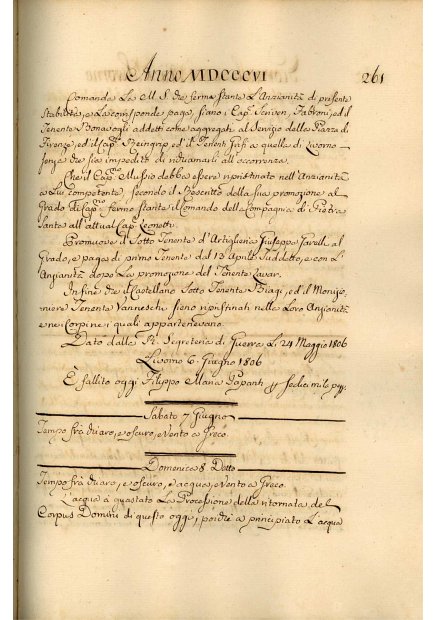 Anno MDCCCVI 261
Comanda La M. S. che ferma stante L'Anzianità di presente
stabilita, e La corrisponde paga, siano i Cap.ni Teniven, Fabroni, ed il
Tenente Bonavogli addetti come aggregati al Servizio della Piazza di
Firenze, ed il Cap. Beingrap ed il Tenenti Grifi a quella di Livorno
senza che sia impedito di richiamarli all'occorrenza.
Che il Cap.no Mussio debba essere ripristinato nell'Anzianità
a Lui competente, secondo il Rescritto della sua promozione al
Grado di Cap.no fermo stante il Comando della Compagnia di Pietra
Santa all'attual Cap. Leonetti.
Promuove il Sotto Tenente d'Artiglieria Giuseppe Farelli al
Grado, e paga di primo Tenente dal 13 Aprile Suddetto, e con L'
Anzianità dopo La promozione del Tenente
Infine che il Castellano Sotto Tenente Biagi, ed il Munizio,,
niere Tenente Vanneschi sieno ripristinati nella Loro Anzianità
e nei Corpi ne i quali appartenevano.
Dato dalla R. Segreteria di Guerra Li 24 Maggio 1806
Livorno 6. Giugno 1806
È fallito oggi Filippo Maria Papanti sedici mila
Sabato 7 Giugno
Tempo frà chiaro, e oscuro, e Vento a Greco.
Domenica 8. Detto
Tempo frà chiaro, e oscuro, e acqua, e Vento a Greco.
L'acqua à guastato La Processione della ritornata del
Corpus Domini di questo oggi, poiche à principiato L'acqua